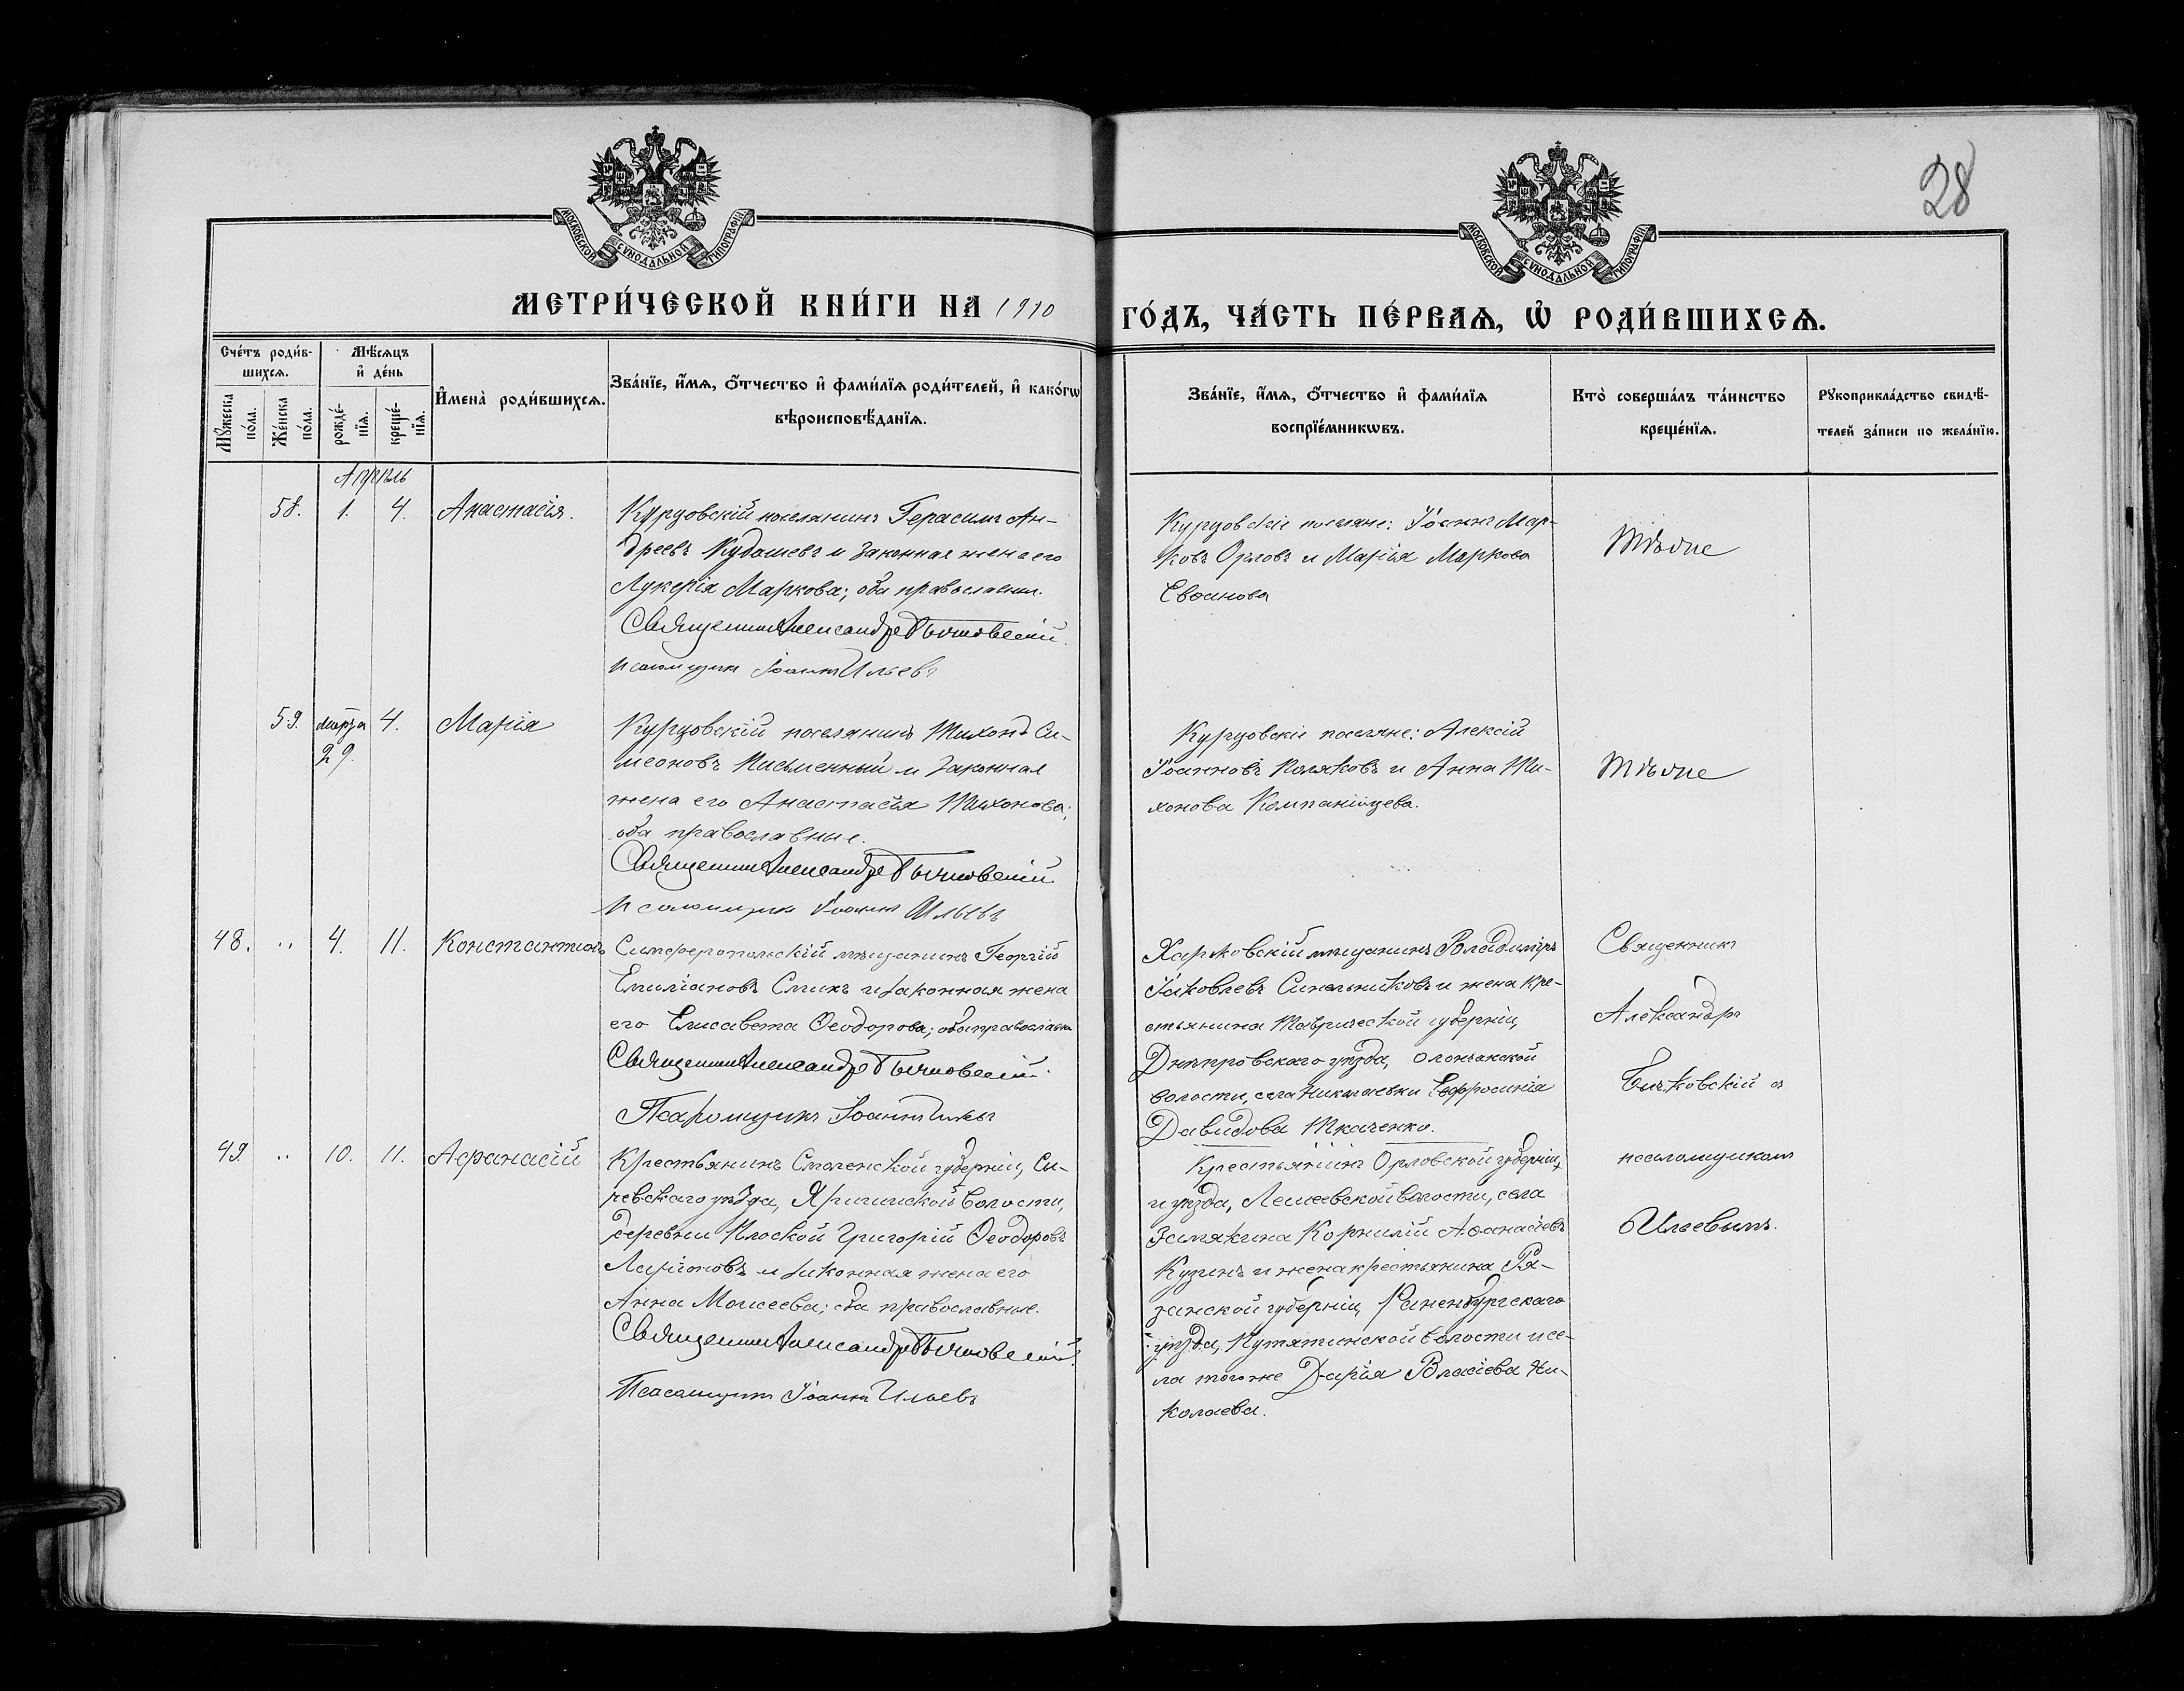 28
МОСКОВСКОЙ СѴНОДАЛЬНОЙ ТИПОГРАФІИ
МОСКОВСКОЙ СѴНОДАЛЬНОЙ ТИПОГРАФІИ
МЕТРИ́ЧЕСКОЙ КНИ́ГИ НА 1910 ГО́ДЪ, ЧА́СТЬ ПЕ́РВАѦ, Ѡ҆ РОДИ́ВШИХСѦ.
Сче́тъ роди́в-
шихсѧ.
Мѣ́сѧцъ
и҆ де́нь
Мꙋ́жеска
по́ла.
Же́нска
по́ла.
рожде́-
нїѧ.
креще́-
нїѧ.
И҆мена̀ роди́вшихсѧ.
Зва́нїе, и҆́мѧ, ѻ҆́тчество и҆ фами́лїѧ роди́телей, и҆ како́гѡ
вѣроисповѣ́данїѧ.
Зва́нїе, и҆́мѧ, ѻ҆́тчество и҆ фами́лїѧ
воспрїе́мникѡвъ.
Кто̀ соверша́лъ та́инство
креще́нїѧ.
Рꙋкоприкла́дство свидѣ́-
телей за́писи по жела́нїю.
Апрѣль
58. 1. 4. Анастасія.
Курцовскій поселянинъ Герасимъ Ан-
дреевъ Кудашевъ и законная жена его
Лукерія Маркова; оба православны.
Священникъ Александръ Бычковскій.
Псаломщикъ Іоаннъ Ильевъ
Курцовскіе поселяне: Іоаннъ Мар-
ковъ Орловъ и Марія Маркова
Тѣ же
59. марта 29. 4. Марія
Курцовскій поселянинъ Тихонъ Си-
меоновъ Письменный и законная
жена его Анастасія Тихонова;
оба православные.
Священникъ Александръ Бычковскій
Псаломщикъ Іоаннъ Ильевъ
Курцовскіе поселяне: Алексій
Іоанновъ Поляковъ и Анна Ти-
хонова Компанійцева.
Тѣ же
48. .. 4. 11. Константинъ
Симферопольскій мѣщанинъ Георгій
Емиліановъ Смикъ и законная жена
его Елисавета Ѳеодорова; оба православны
Священникъ Александръ Бычковскій.
Псаломщикъ Іоаннъ Ильевъ
Харьковскій мѣщанинъ Владиміръ
Іаковлевъ Синельниковъ и жена кре-
стьянина Таврической губерніи,
Днѣпровскаго уѣзда,
волости, села Николаевки Евфросинія
Давидова Ткаченко.
Священникъ
Александръ
Бычковскій съ
псаломщикомъ
Ильевымъ.
49. .. 10. 11. Аѳанасій
Крестьянинъ Смоленской губерніи, Сы-
чевскаго уѣзда, Яригинской волости,
деревни Плоской Григорій Ѳеодоровъ
Ларіоновъ и законная жена его
Анна Моисеева; оба православные.
Священникъ Александръ Бычковскій.
Псаломщикъ Іоаннъ Ильевъ
Крестьянинъ Орловской губерніи,
и уѣзда, волости, села
Корнилій Аѳанасіевъ
Кузинъ и жена крестьянина Ря-
занской губерніи, Раненбургскаго
уѣзда, Путятинской волости и се-
ла того же Дарія Власіева Ни-
колаева.